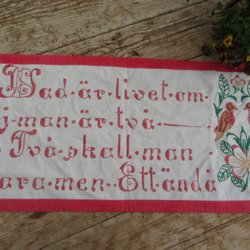 Vad·är·livet·om·
j·man·är·två—
Två·skall·man
ara·men·Ett·ändå